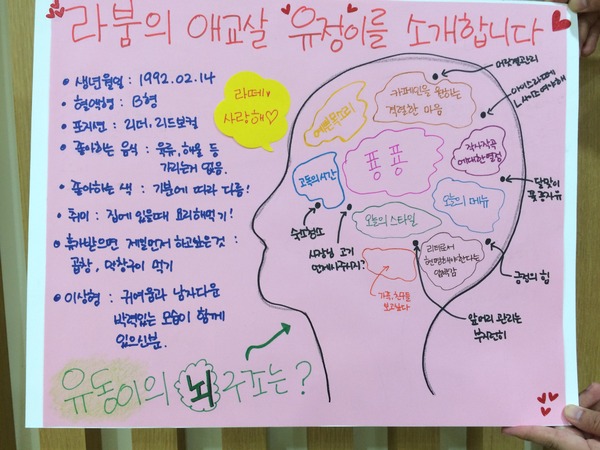 라붐의 애교살 유정이를 소개합니다
• 생년월일 : 1992.02.14
• 혈액형 : B형
• 포지션 : 리더, 리드보컬
• 좋아하는 음식 : 육류, 해물 등
가리는거 없음.
• 좋아하는 색 : 기분에 따라 다름!
• 취미 : 집에 있을때 요리해먹기!
• 휴가받으면 제일먼저 하고싶은것 :
곱창, 막창구이 먹기
• 이상형 : 귀여움과 남자다운
박력있는 모습이 함께
있으신분.
유동이의 뇌 구조는?
라떼♥
사랑해♡
예쁜목소리
카페인을 원하는
격렬한 마음
머릿결관리
아이스라떼
나사오
작사작곡
에대한열정
퐁퐁
고독의시간
오늘의 메뉴
달맞이
꽃종자유
숙소청소
사장님 고기
언제사주셔요?
오늘의 스타일
리더로서
해야한다는
압박감
긍정의 힘
가족,친구들
보고싶다
앞머리 관리는
부지런히